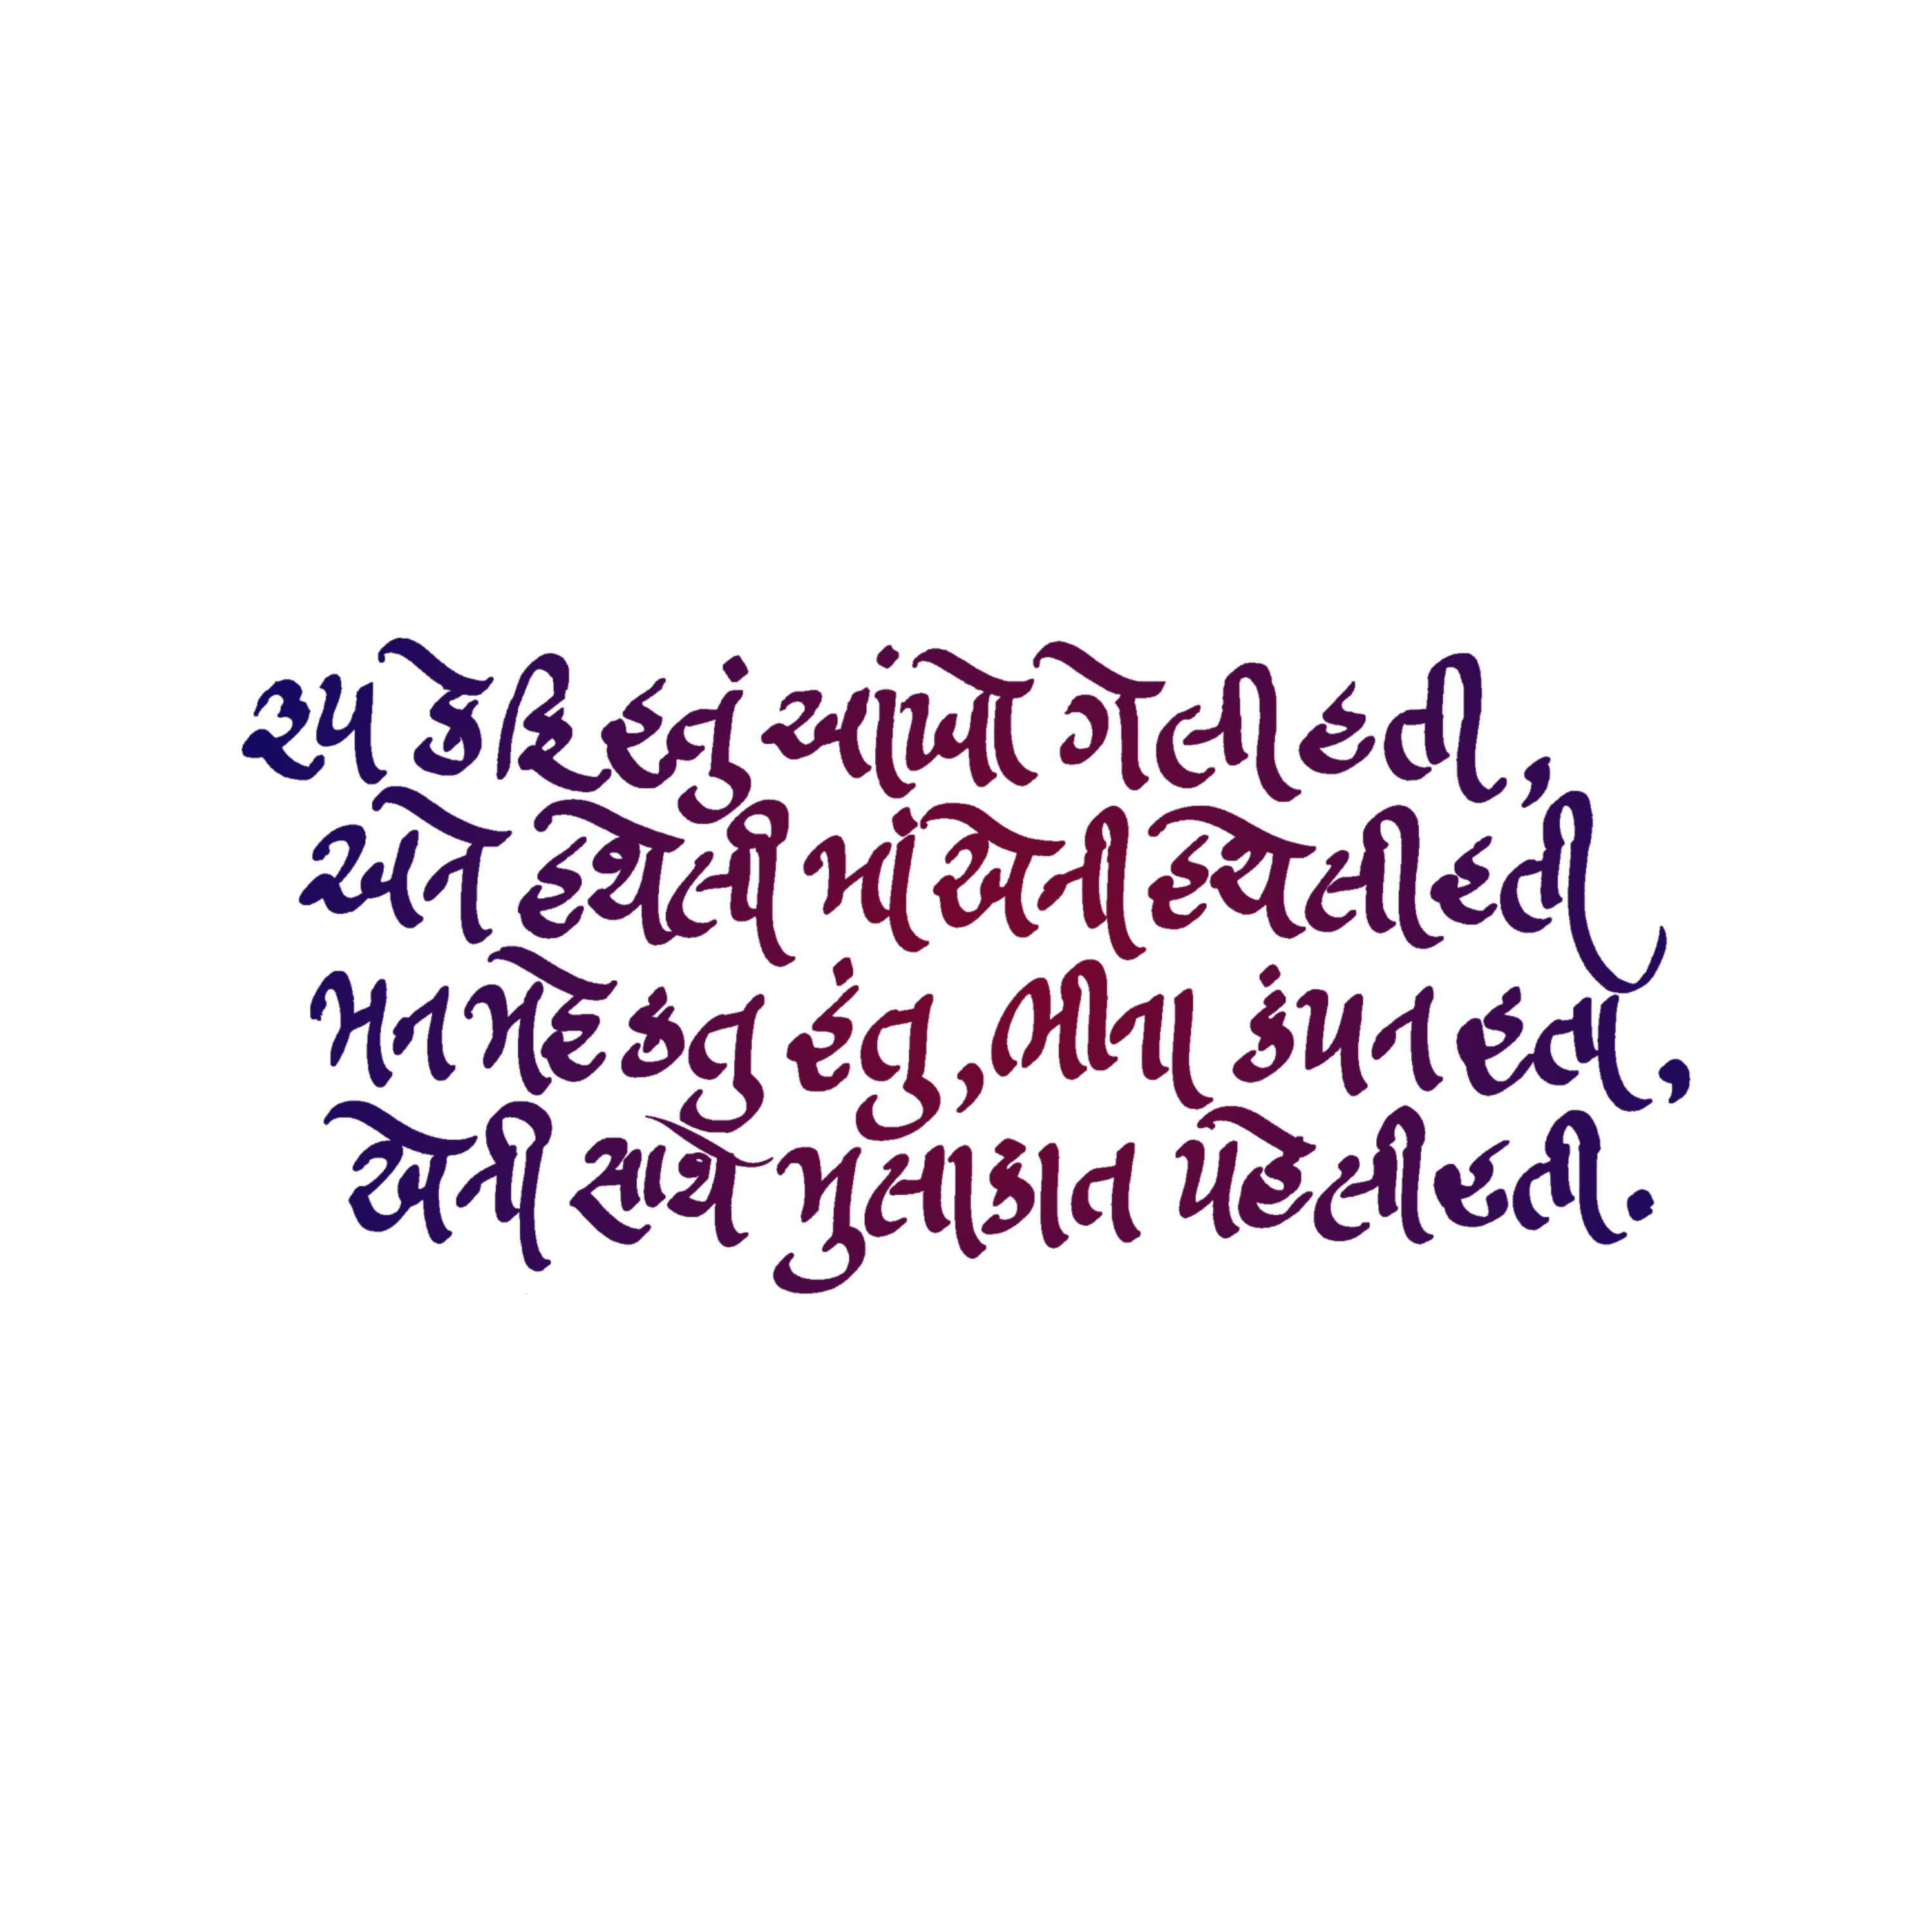 રૂપ કેફિ હતું આંખો ઘેલી હતી,
અને હથેલી માં એની હથેલી હતી
મન મહેકતુ હતું, ભીના કંપન હતા,
એની સાથે મુલાકાત પહેલી હતી.